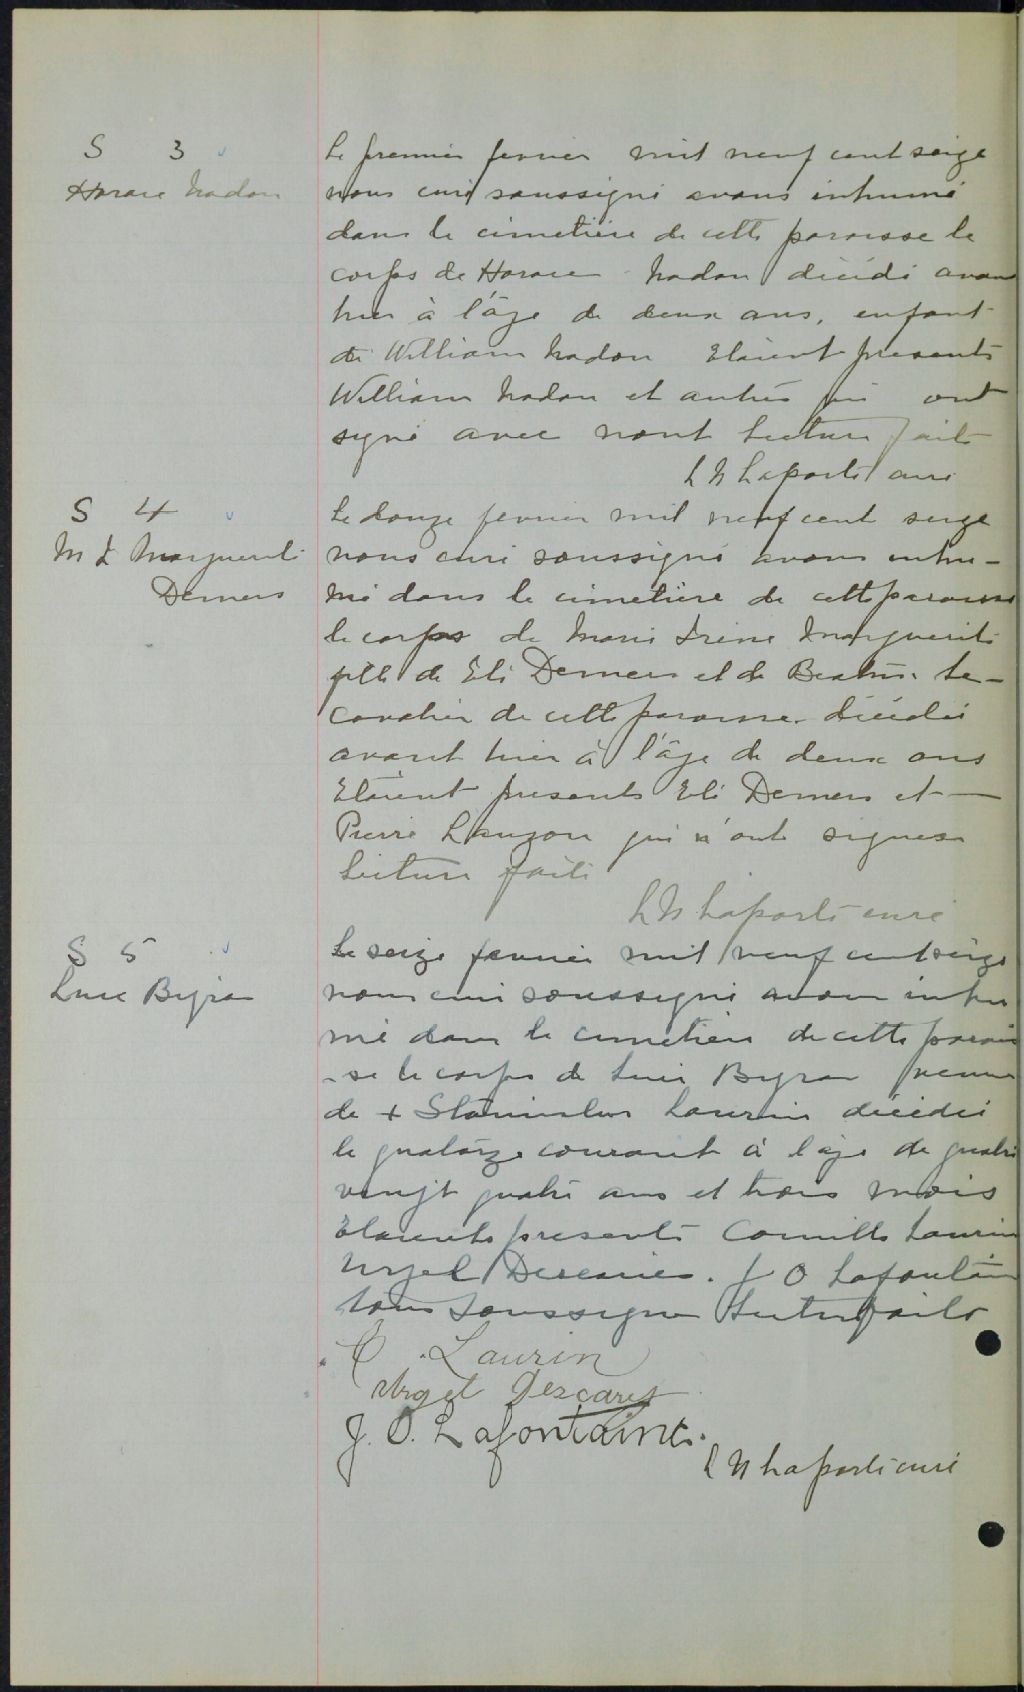 S 3
Horace Nadon
Le premier fevrier mil neuf cent seize
nous curé soussigné avons inhumé
dans le cimetière de cette paroisse le
corps de Horace Nadon décédé avant
hier à l'âge de deux ans, enfant
de William Nadon Etaient presents
William Nadon et autres qui ont
signé avec nous Lecture faite
L N Laporte curé
S 4
M I Marguerite
Demers
Le douze fevrier mil neuf cent seize
nous curé soussigné avons inhu-
mé dans le cimetière de cette paroisse
le corps de Marie Irène Marguerite
fille de Eli Demers et de Beatrice Le-
cavalier de cette paroisse décédée
avant hier à l'âge de deux ans
Etaient presents Eli Demers et
Pierre Lauzon qui n'ont signes
Lecture faite
L N Laporte curé
S 5
Luce Byron
Le seize fevrier mil neuf cent seize
nous curé soussigné avons inhu
mé dans le cimetière de cette parois
-se le corps de Luce Byron veuve
de + Stanislas Laurin décédée
le quatorze courant à l'âge de quatre
vingt quatre ans et trois mois
Etaient presents Camille Laurin
Urgel Descaries. J O Lafontaine
tous soussignes Lecture faite
C. Laurin
Urgel Descaries
J. O. Lafontaine.
L N Laporte curé